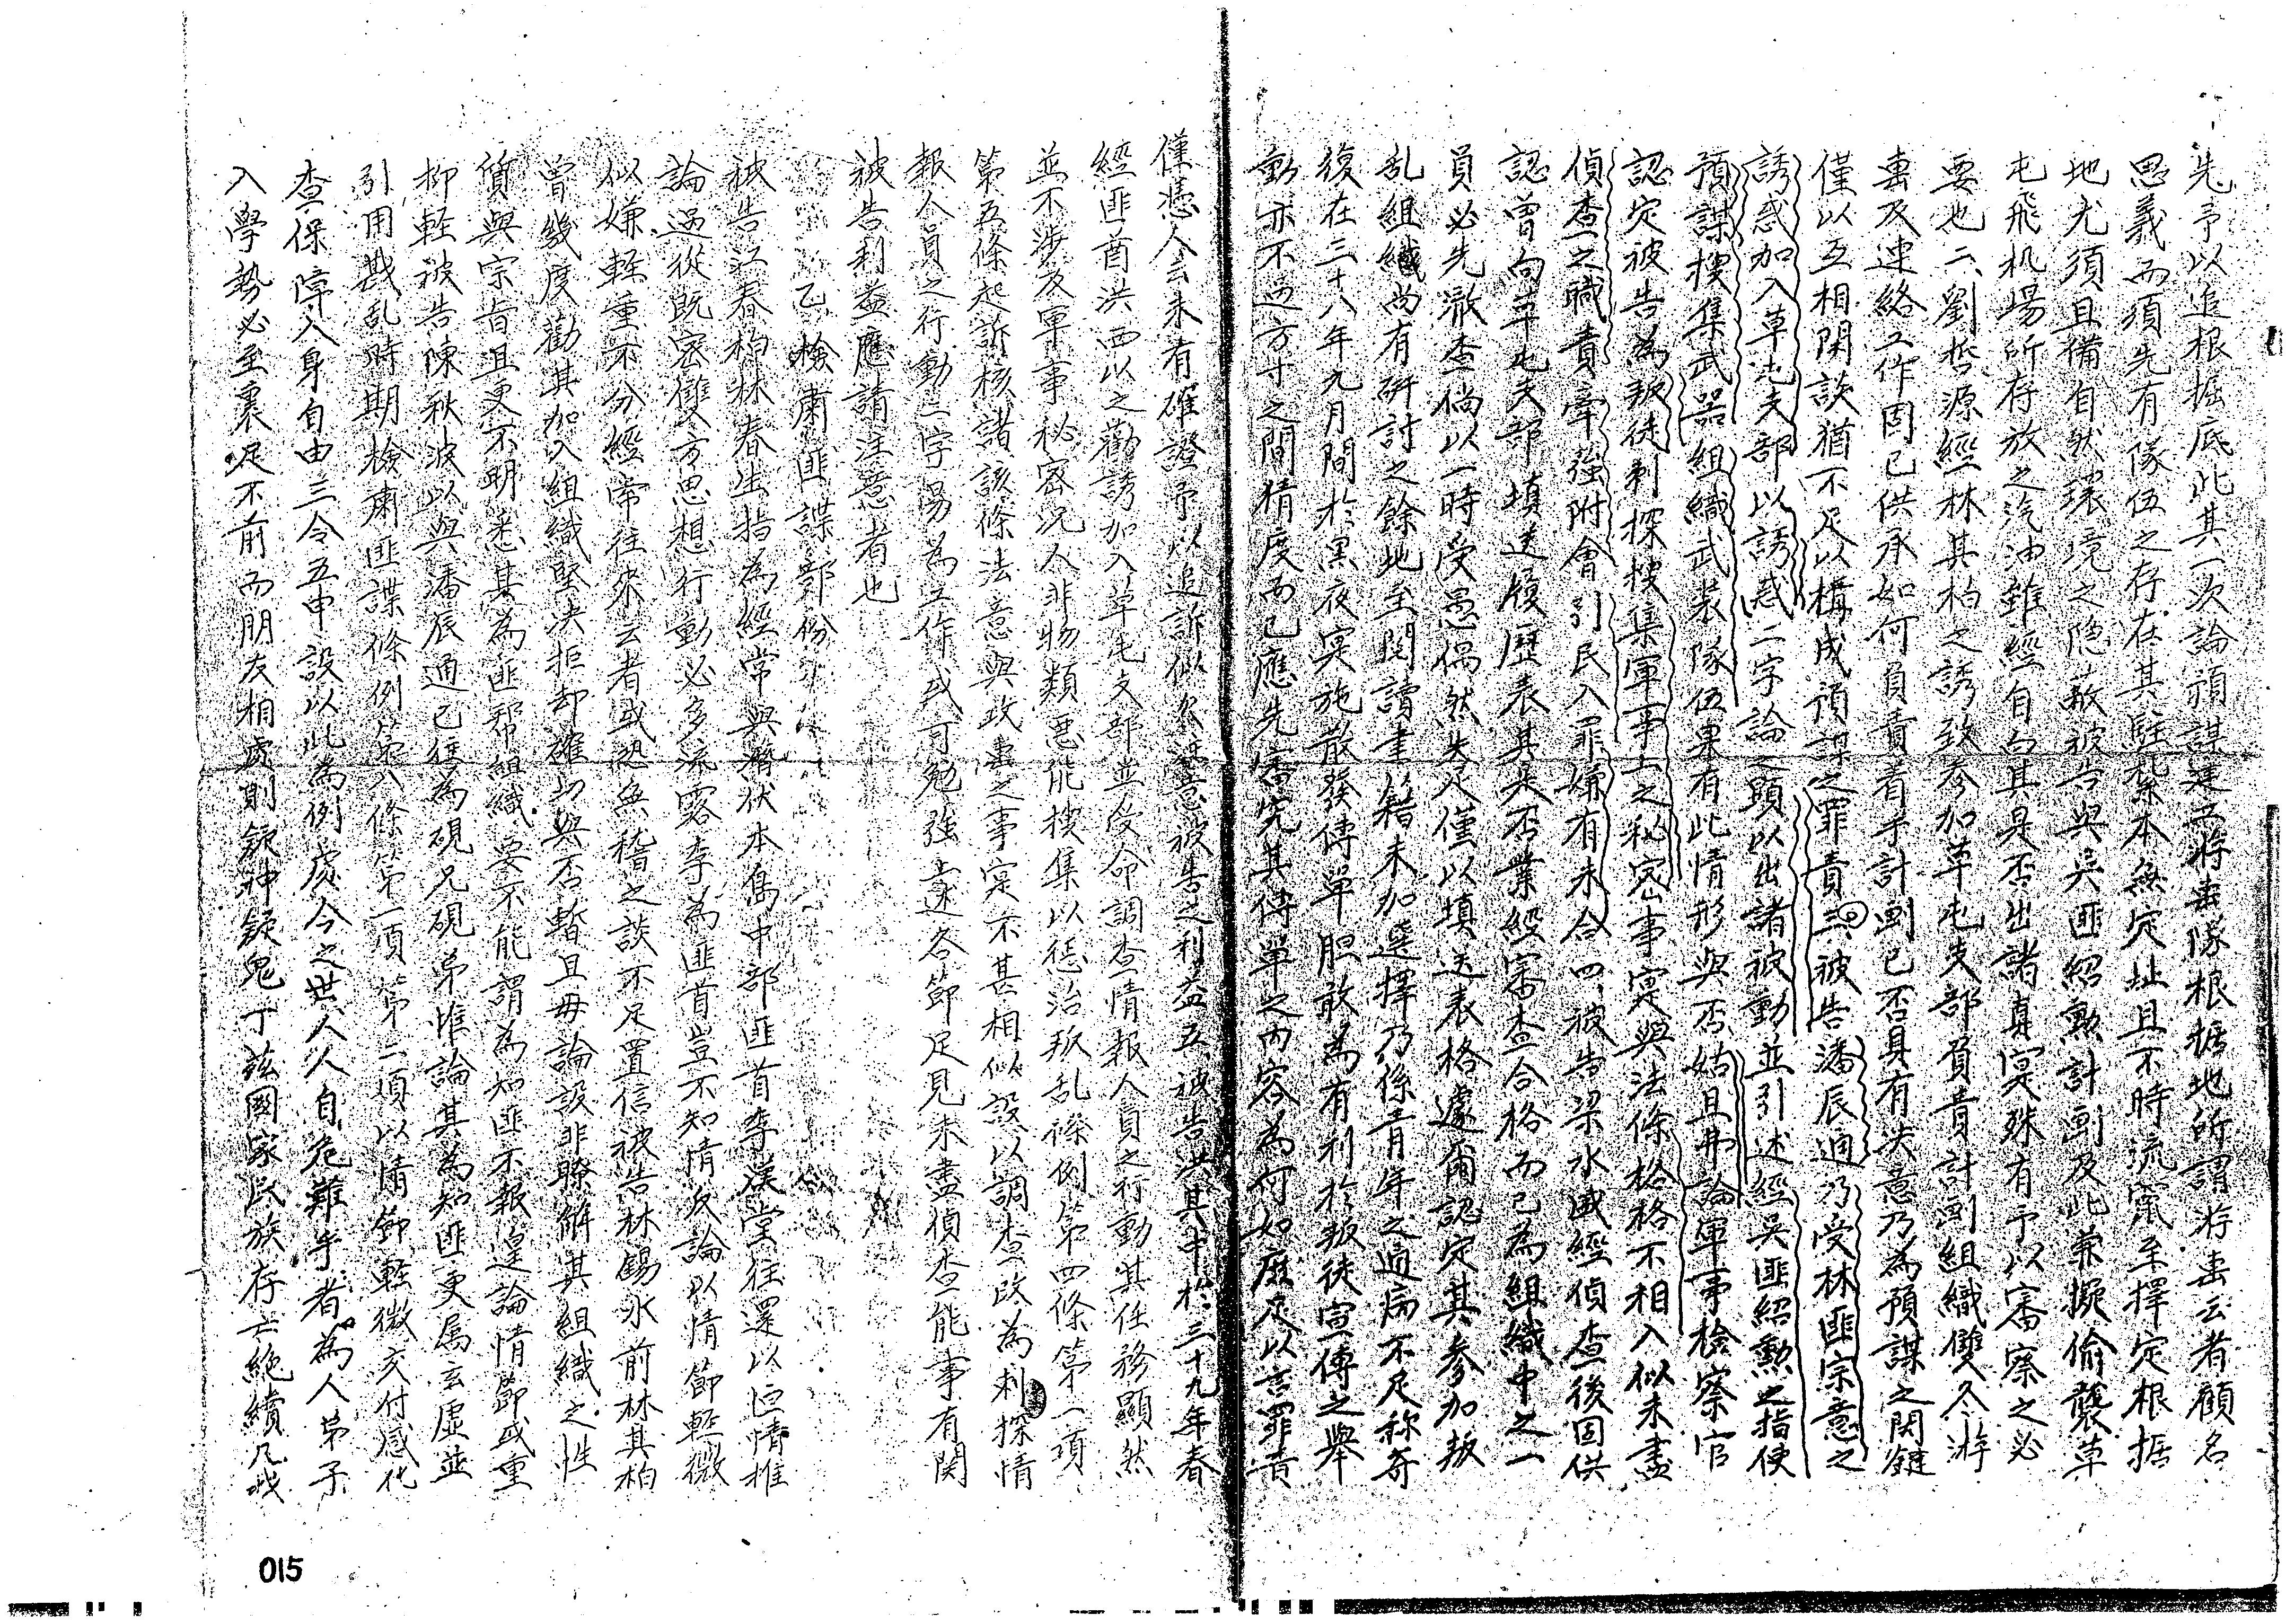 先予以追根掘底此其一次論預謀建立游击隊根据地所謂游击云者顧名
思義而須先有隊伍之存在其駐紮本無定址且不時流竄至擇定根据
地尤須且備自然環境之隐蔽被告與吳匪紹勳計劃及此兼擬偷襲草
屯飛机場所存放之汽油雖經自白其是否出諸真實殊有予以審察之必
要也二、劉哲源經林其柏之誘致参加草屯支部負責計劃組織雙冬游
击及連絡工作固已供承如何負責着手計劃已否具有决意乃為預謀之関鍵
僅以互相閑談猶不足以構成預謀之罪責三、被告潘辰通乃受林匪宗意之
誘惑加入草屯支部以誘惑二字論之顕以出諸被動並引述經吳匪紹勳之指使
預謀搜集武器組織武裝隊伍果有此情形與否姑且弗論軍事檢察官
認定被告為叛徒刺探搜集軍事上之秘密事實與法條格格不相入似未盡
偵查之職責牽強附會引民入罪嫌有未合四、被告梁水盛經偵查後固供
認曾向草屯支部填送履歷表其是否業經審查合格而已為組織中之一
員必先澈查倘以一時受愚偶然失足僅以填送表格遽爾認定其参加叛
乱組織尚有研討之餘地至閱讀書籍未加選擇乃係青年之通病不足称奇
復在三十八年九月間於黑夜实施散發傳單胆敢為有利於叛徒宣傳之舉
動亦不過方寸之間猜度而已應先審究其傳單之內容為何如庶足以言罪責
僅憑人云未有確證予以追訴似欠注意被告之利益五、被告洪其中於三十九年春
經匪酋洪西以之勸誘加入草屯支部並受命調查情報人員之行動其任務顯然
並不涉及軍事秘密况人非物類悪能搜集以惩治叛乱條例第四條第一項
第五條起訴核諸該條法意與政击之事实不甚相似設以調查改為刺探情
報人員之行動二字易為工作或可勉強上述各節足見未盡偵查能事有関
被告利益應請注意者也
乙、檢肅匪諜部份
被告江春柏林春生指為經常與潛伏本島中部匪首李漢堂往還以恒情推
論過從既密雙方思想行動必多流露李為匪首豈不知情反論以情節輕微
似嫌輕重不分經常往來云者或恐無稽之談不足置信被告林錫水前林其柏
曾幾度勸其加入組織堅决拒却確切與否暫且毋論設非瞭解其組織之性
質與宗旨且更不明悉其為匪帮組織要不能謂為知匪不報遑論情節或重
抑輕被告陳秋波以與潘辰通已往為硯兄硯弟惟論其為知匪更属玄虛並
引用戡乱時期檢肅匪諜條例第八條第一項第二項以情節輕微交付感化
查保障人身自由三令五申設以此為例處今之世人人自危難乎者為人弟子
入學勢必至裹足不前而朋友相處則疑神疑鬼丁茲國家民族存亡絶續凡我
015